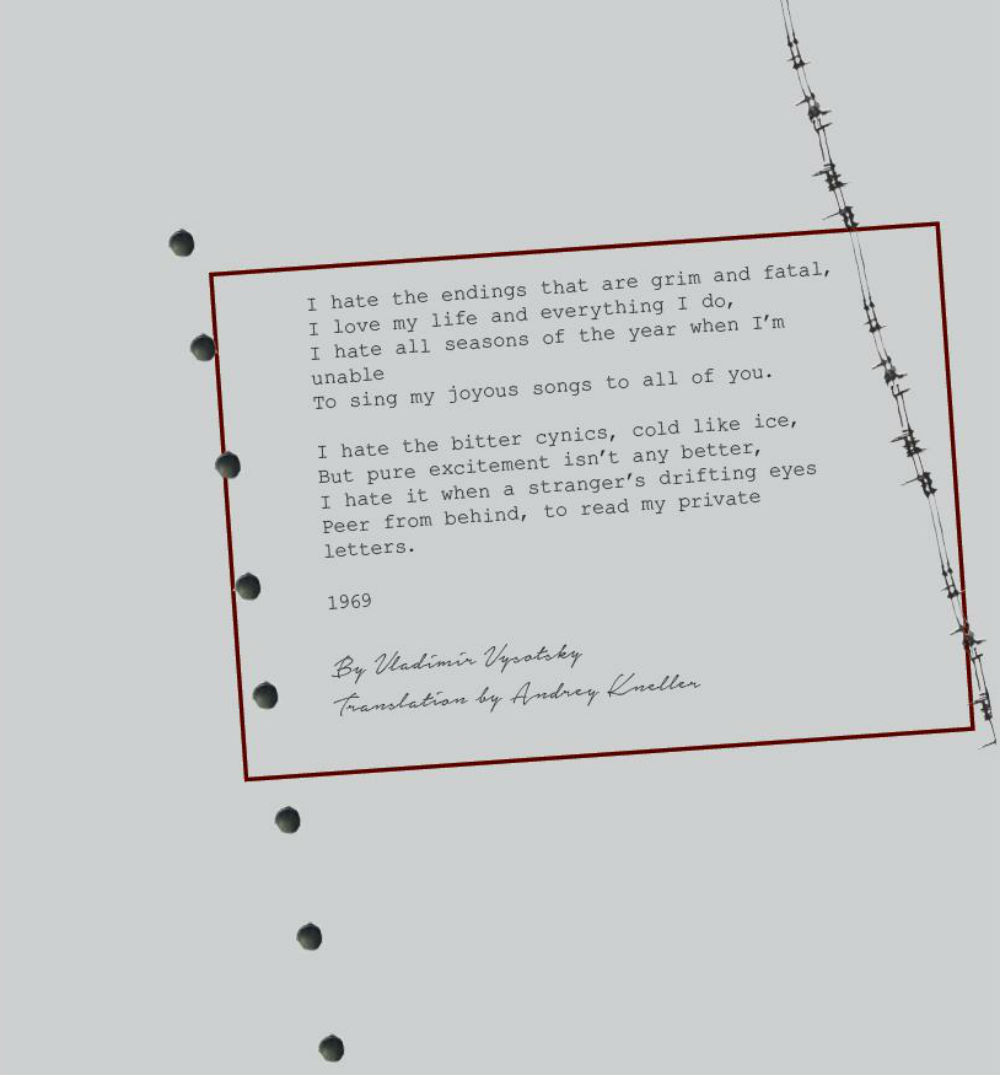 I hate the endings that are grim and fatal,
I love my life and everything I do,
I hate all seasons of the year when I'm
unable
To sing my joyous songs to all of you.
I hate the bitter cynics, cold like ice,
But pure excitement isn't any better,
I hate it when a stranger's drifting eyes
Peer from behind, to read my private
letters.
1969
By Vladimir Vysotsky
Translation by Andrey Kneller